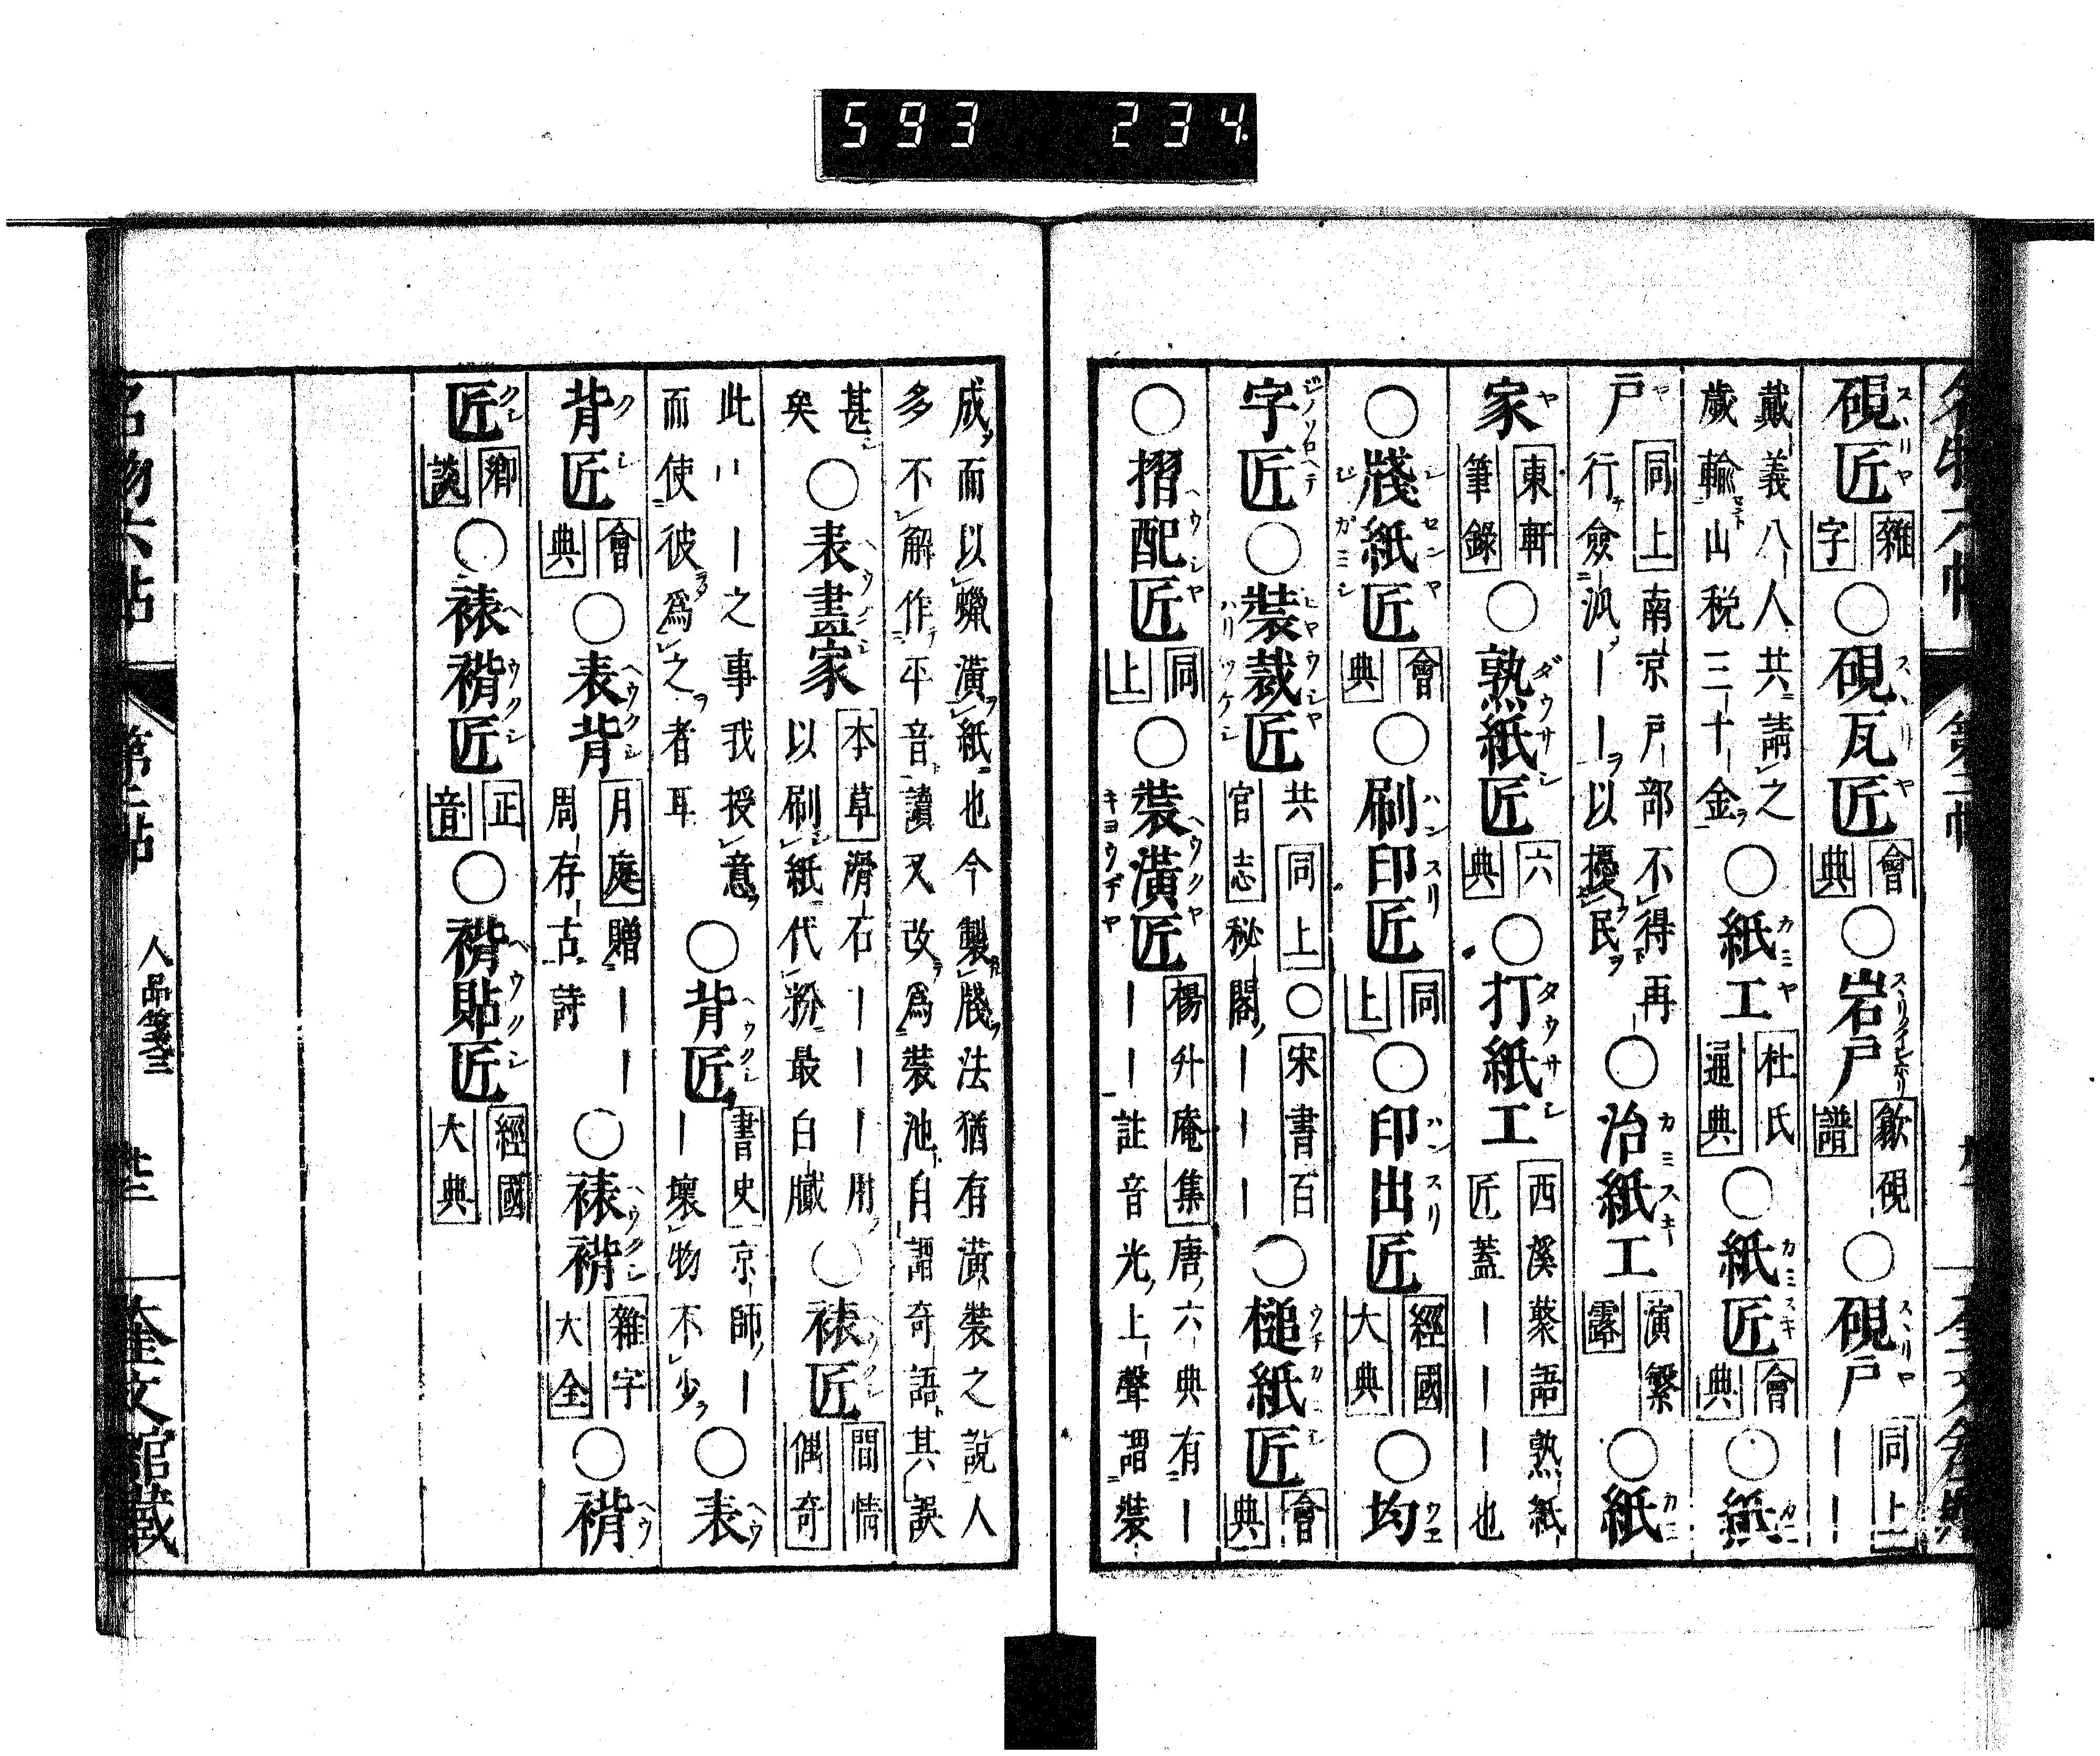 593 234
硯匠 雜字 ○硯瓦匠 會典 ○岩戸 歙硯譜 ○硯戸 同上 ——
戴義八人共請之歲輸山税三十金 ○紙工 杜氏通典 ○紙匠 會典 ○紙
戸 同上 南京戸部不得再行僉派——以擾民 ○治紙工 演繁露 ○紙
家 東軒筆錄 ○熟紙匠 六典 ○打紙工 西溪叢語 熟紙匠蓋———也
○牋紙匠 會典 ○刷印匠 同上 ○印出匠 經國大典 ○均
字匠 ○裝裁匠 共同上 ○宋書百官志 秘閣——— ○槌紙匠 會典
○摺配匠 同上 ○裝潢匠 楊升庵集 唐六典有———註音光上聲謂裝
成而以蠟潢紙也今製牋法猶有潢裝之說人多不解作平音讀又改爲裝池自謂奇語其誤
甚矣 ○表畫家 本草 滑石———用以刷紙代粉最白膩 ○裱匠 閒情偶奇
此〃—之事我授意而使彼爲之者耳 ○背匠 書史 京師——壞物不少 ○表
背匠 會典 ○表背 月庭 贈——周存古詩 ○裱褙 雜字大全 ○褙
匠 卿談 ○裱褙匠 正音 ○褙貼匠 經國大典
名物六帖 第二帖 人品箋三 奎文館藏